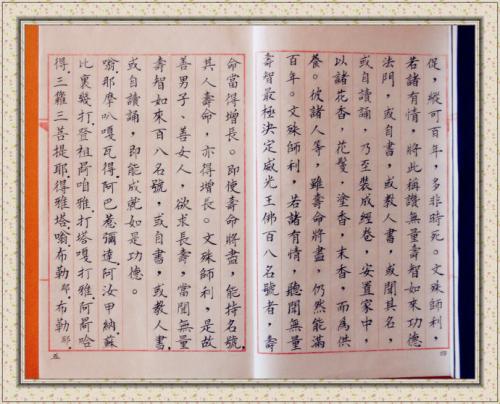 促，縱可百年，多非時死。文殊師利，
若諸有情，將此稱讚無量壽智如來功德
法門，或自書，或教人書，或聞其名，
或自讀誦，乃至裝成經卷，安置家中，
以諸花香，花鬘，塗香，末香，而為供
養。彼諸人等，雖壽命將盡，仍然能滿
百年。文殊師利，若諸有情，聽聞無量
壽智最極決定威光王佛百八名號者，壽
四
命當得增長。即使壽命將盡，能持名號，
其人壽命，亦得增長。文殊師利，是故
善男子、善女人，欲求長壽，當聞無量
壽智如來百八名號，或自書，或教人書，
或自讀誦，即能成就如是功德。
嗡.那摩叭嘎瓦得.阿巴惹彌達.阿汝甲納.蘇
比裏幾打.登祖荷咱雅打塔嘎打雅.阿荷哈
得.三籮三菩提耶.得雅塔.嗡布勒耶布勒耶.
五